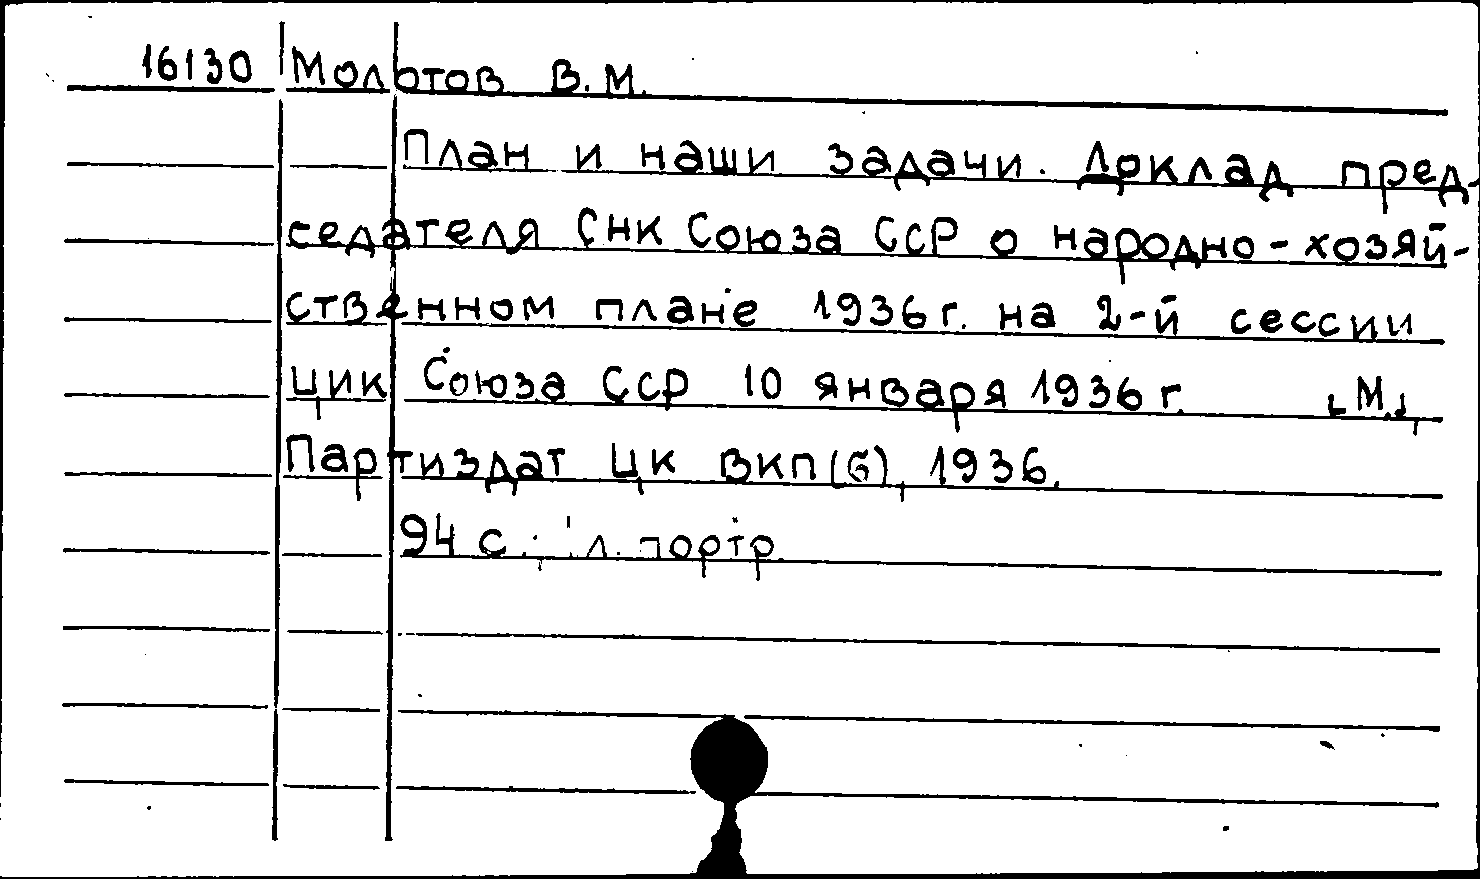 16130 Молотов В.М.
План и наши задачи. Доклад пред-
седателя СНК Союза ССР о народно-хозяй-
ственном плане 1936 г. на 2-й сессии
ЦИК Союза ССР 10 января 1936 г. [М.],
Партиздат ЦК ВКП(б), 1936.
94 с.; л. портр.